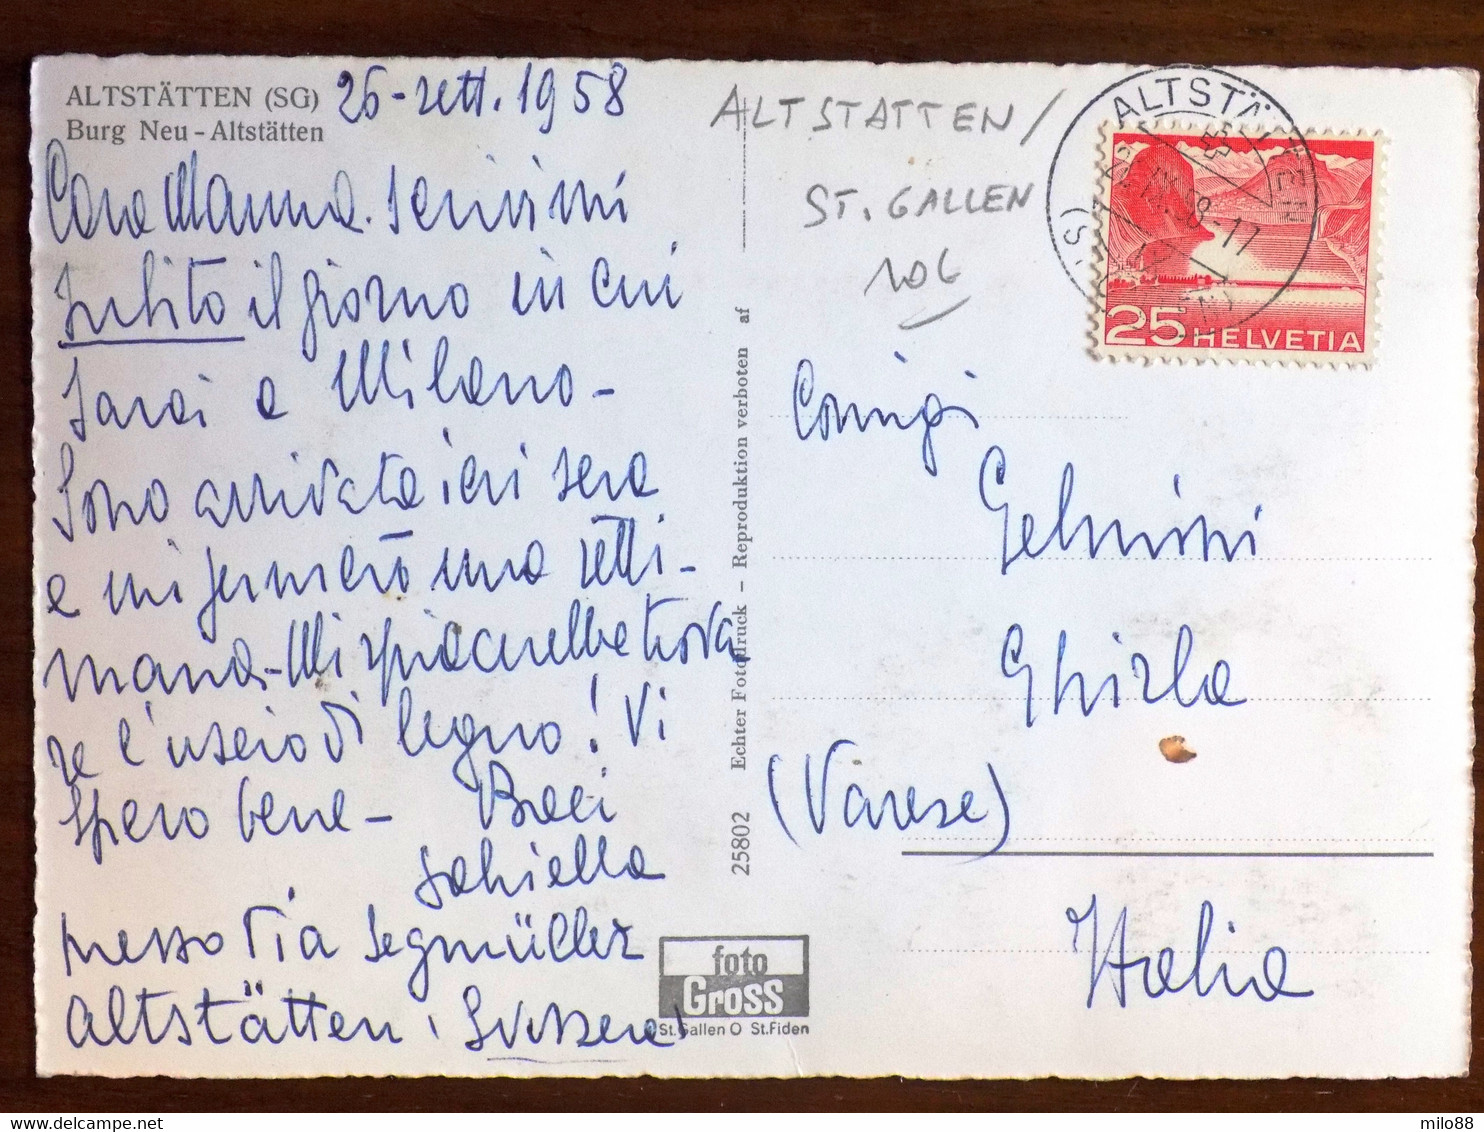 ALTSTÄTTEN (SG)
Burg Neu-Altstätten
26-sett. 1958
Cara Mamma. Scrivimi
subito il giorno in cui
sarai a Milano-
Sono arrivata ieri sera
e mi fermerò una setti-
mana.- Mi spiacerebbe trova
re l'uscio di legno! Vi
spero bene- Baci
presso Fia Segmüller
Altstätten, Svizzera
25802 Echter Fotodruck - Reproduktion verboten af
foto
Gross
St.Gallen O St.Fiden
ALTSTATTEN/
ST. GALLEN
106
ALTSTÄTTEN
IX.58-17
25 HELVETIA
Coniugi
Gelmini
Ghirla
(Varese)
Italia
milo88